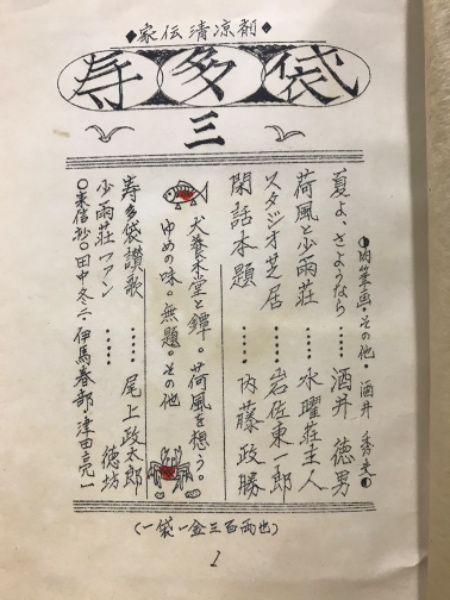 ◆家伝清涼剤◆
寿多袋
三
◐肉筆画・その他・酒井秀夫◑
夏よ、さようなら・・・・・酒井徳男
荷風と少雨荘・・・・・水曜荘主人
スタジオ芝居・・・・・岩佐東一郎
閑話本題・・・・・内藤政勝
犬養木堂と鐔。荷風を想う。
ゆめの味。無題。その他
寿多袋讃歌・・・・・尾上政太郎
少雨荘ファン・・・・・徳坊
○来信抄○田中冬二・伊馬春部・津田亮一
(一袋一金三百両也)
1